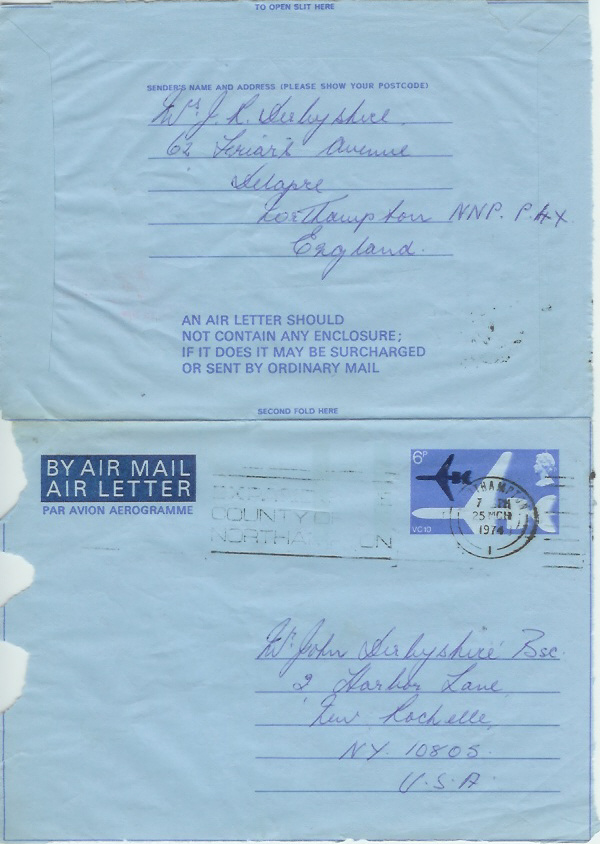 TO OPEN SLIT HERE
SENDER'S NAME AND ADDRESS (PLEASE SHOW YOUR POSTCODE)
J. R. Derbyshire.
62 Avenue
Delapre
Northampton NNP. P.4x.
England.
AN AIR LETTER SHOULD
NOT CONTAIN ANY ENCLOSURE;
IF IT DOES IT MAY BE SURCHARGED
OR SENT BY ORDINARY MAIL
SECOND FOLD HERE
BY AIR MAIL
AIR LETTER
PAR AVION AEROGRAMME
6P
VC10
COUNTY OF
7 PM
25 MCH
1974
1
Mr John Derbyshire Bsc.
2 Harbor Lane
New Rochelle
NY. 10805.
U.S.A.